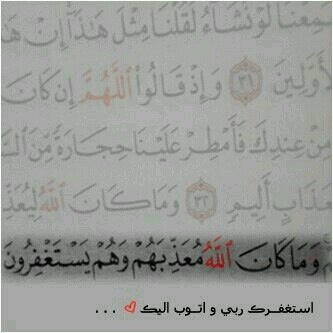 سَمِعْنَا لَوْ نَشَآءُ لَقُلْنَا مِثْلَ هَٰذَآ إِنْ هَٰ
ٱلْأَوَّلِينَ ٣١ وَإِذْ قَالُوا۟ ٱللَّهُمَّ إِن كَانَ
مِنْ عِندِكَ فَأَمْطِرْ عَلَيْنَا حِجَارَةً مِّنَ ٱلسَّ
بِعَذَابٍ أَلِيمٍ ٣٢ وَمَا كَانَ ٱللَّهُ لِيُعَذِّ
وَمَا كَانَ ٱللَّهُ مُعَذِّبَهُمْ وَهُمْ يَسْتَغْفِرُونَ
استغفرك ربي و اتوب اليك ...